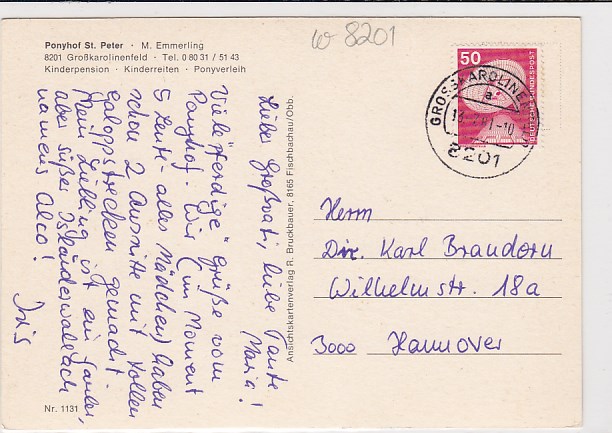 W 8201
Ponyhof St. Peter · M. Emmerling
8201 Großkarolinenfeld · Tel. 0 80 31 / 51 43
Kinderpension · Kinderreiten · Ponyverleih
Lieber Großvati, liebe Tante
Maria!
Viele "pferdige" Grüße vom
Ponyhof. Wir (im Moment
5 Leute - alles Mädchen) haben
schon 2 Ausritte mit tollen
Galoppstrecken gemacht.
Mein Liebling ist ein
aber süßer Isländerwallach
namens Alco!
Iris
Nr. 1131
Ansichtskartenverlag R. Bruckbauer, 8165 Fischbachau/Obb.
50
DEUTSCHE BUNDESPOST
GROSSKAROLINEN
a
8201
Herrn
Dir. Karl Brandorn
Wilhelmstr. 18a
3000 Hannover